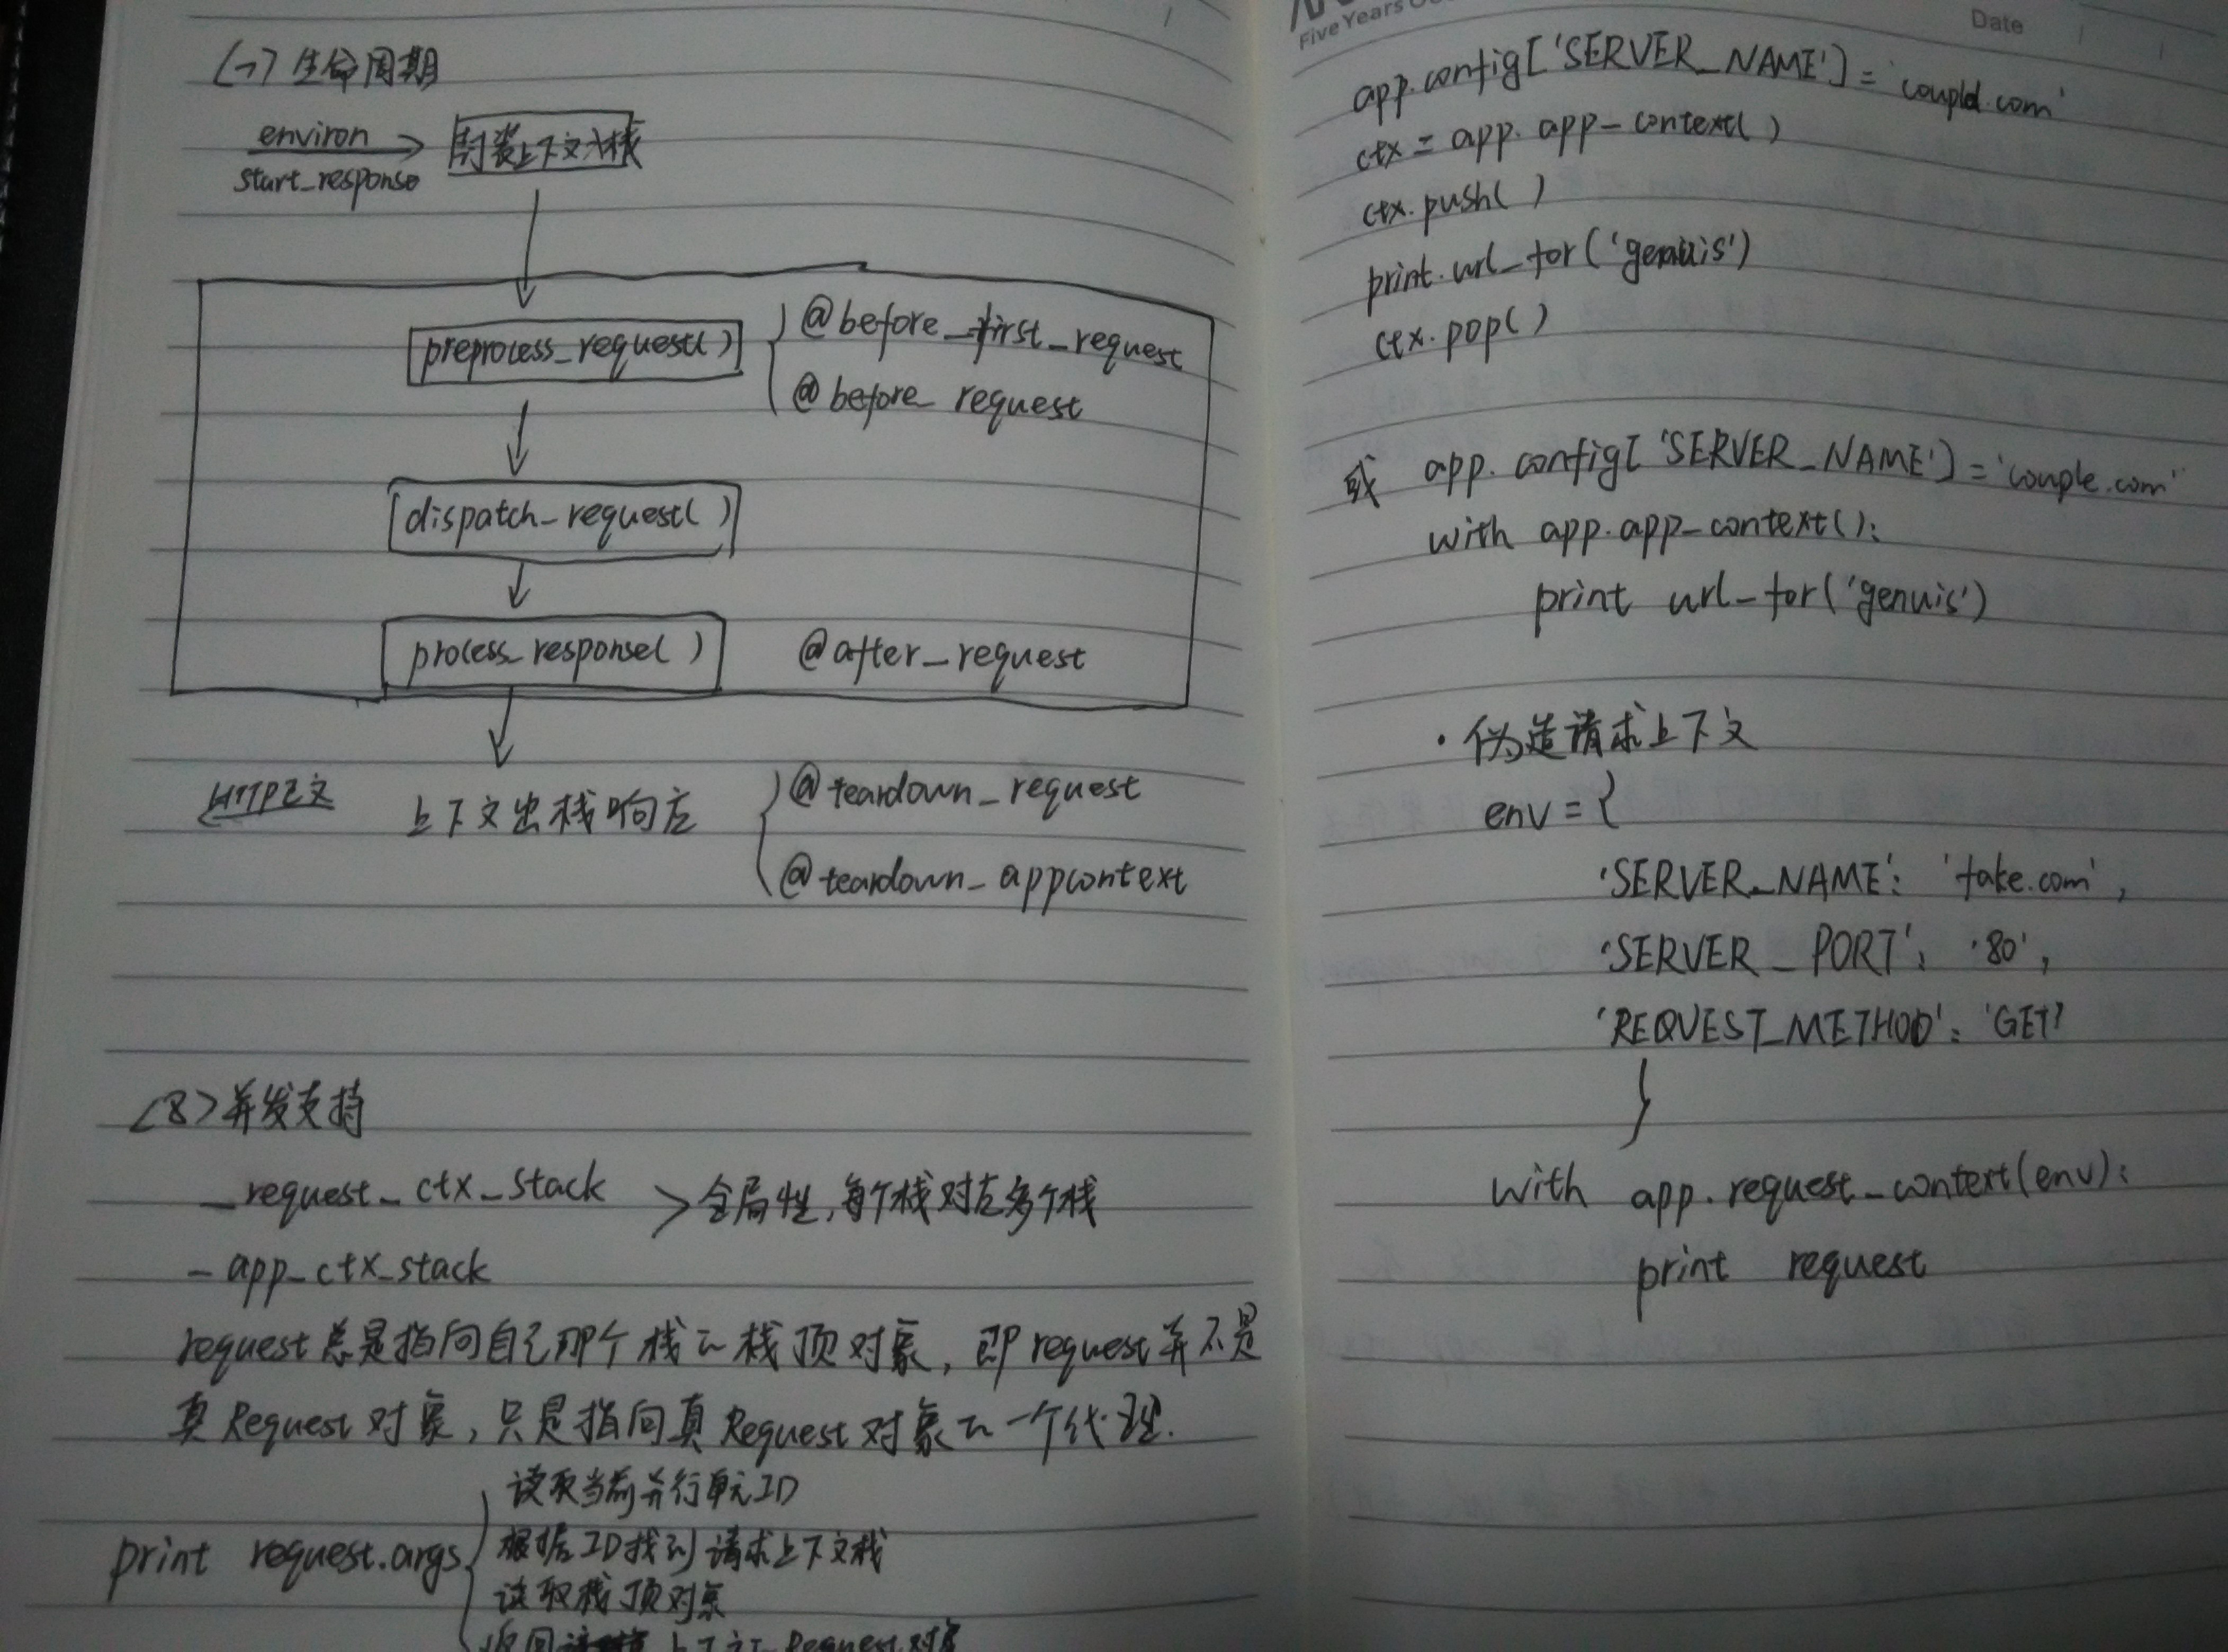 (7) 生命周期
environ
start_response
封装上下文入栈
preprocess_request()
@before_first_request
@before_request
dispatch_request()
process_response()
@after_request
HTTP正文
上下文出栈响应
@teardown_request
@teardown_appcontext
(8) 并发支持
_request_ctx_stack
全局性,每个栈对应多个栈
_app_ctx_stack
request总是指向自己那个栈的栈顶对象,即request并不是
真Request对象,只是指向真Request对象的一个代理.
print request.args
读取当前并行单元ID
根据ID找到请求上下文栈
读取栈顶对象
返回 上下文的Request对象
Five Years
Date
app.config['SERVER_NAME']='
.com'
ctx = app.app_context()
ctx.push()
print.url_for('genuis')
ctx.pop()
或 app.config['SERVER_NAME']='couple.com'
with app.app_context():
print url_for('genuis')
· 伪造请求上下文
env = {
'SERVER_NAME': 'fake.com',
'SERVER_PORT': '80',
'REQUEST_METHOD': 'GET'
}
with app.request_context(env):
print request